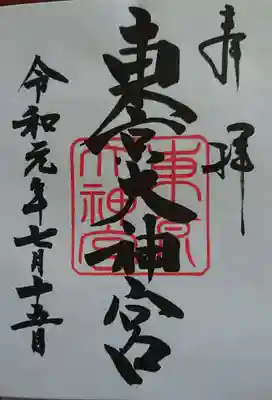 奉拝
東京大神宮
東京大神宮
令和元年七月十五日